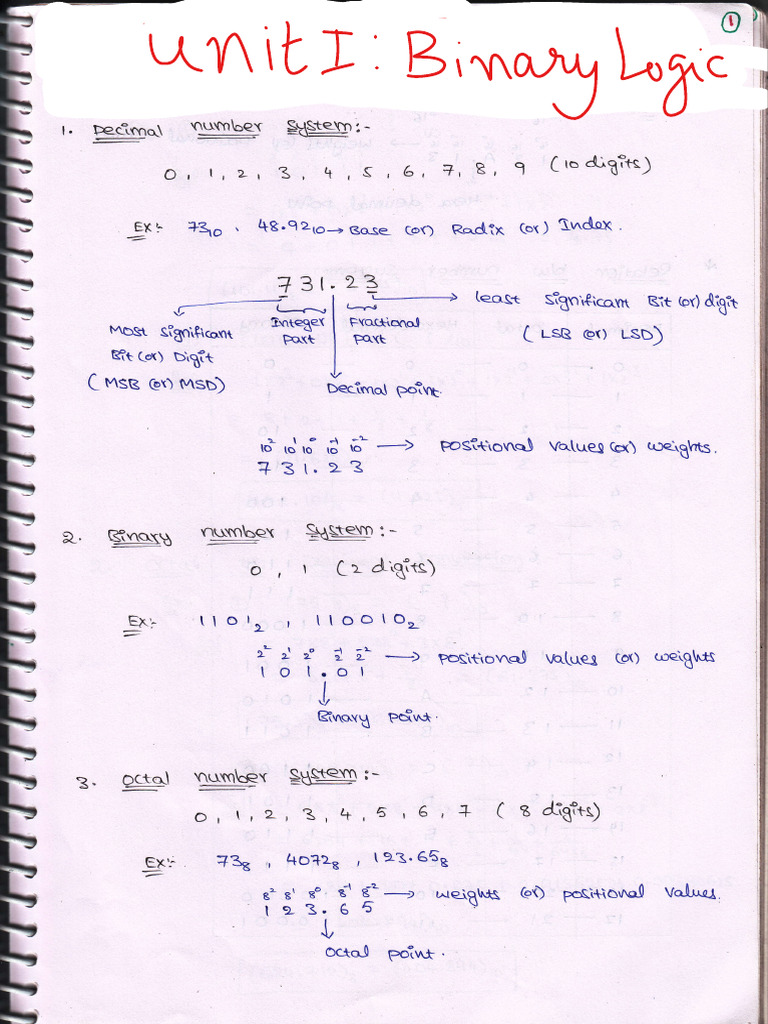 1
Unit I : Binary Logic
1. Decimal number system:-
0, 1, 2, 3, 4, 5, 6, 7, 8, 9 (10 digits)
Ex:- 73₁₀, 48.92₁₀ → Base (or) Radix (or) Index.
731.23
least significant Bit (or) digit
(LSB (or) LSD)
Integer part
Fractional part
Most significant
Bit (or) Digit
(MSB (or) MSD)
Decimal point.
10² 10¹ 10⁰ 10⁻¹ 10⁻² → positional values (or) weights.
7 3 1 . 2 3
2. Binary number system:-
0, 1 (2 digits)
Ex:- 1101₂, 110010₂
2² 2¹ 2⁰ 2⁻¹ 2⁻² → positional values (or) weights
1 0 1 . 0 1
Binary point.
3. Octal number system:-
0, 1, 2, 3, 4, 5, 6, 7 (8 digits)
Ex:- 73₈, 4072₈, 123.65₈
8² 8¹ 8⁰ 8⁻¹ 8⁻² → weights (or) positional values.
1 2 3 . 6 5
Octal point.